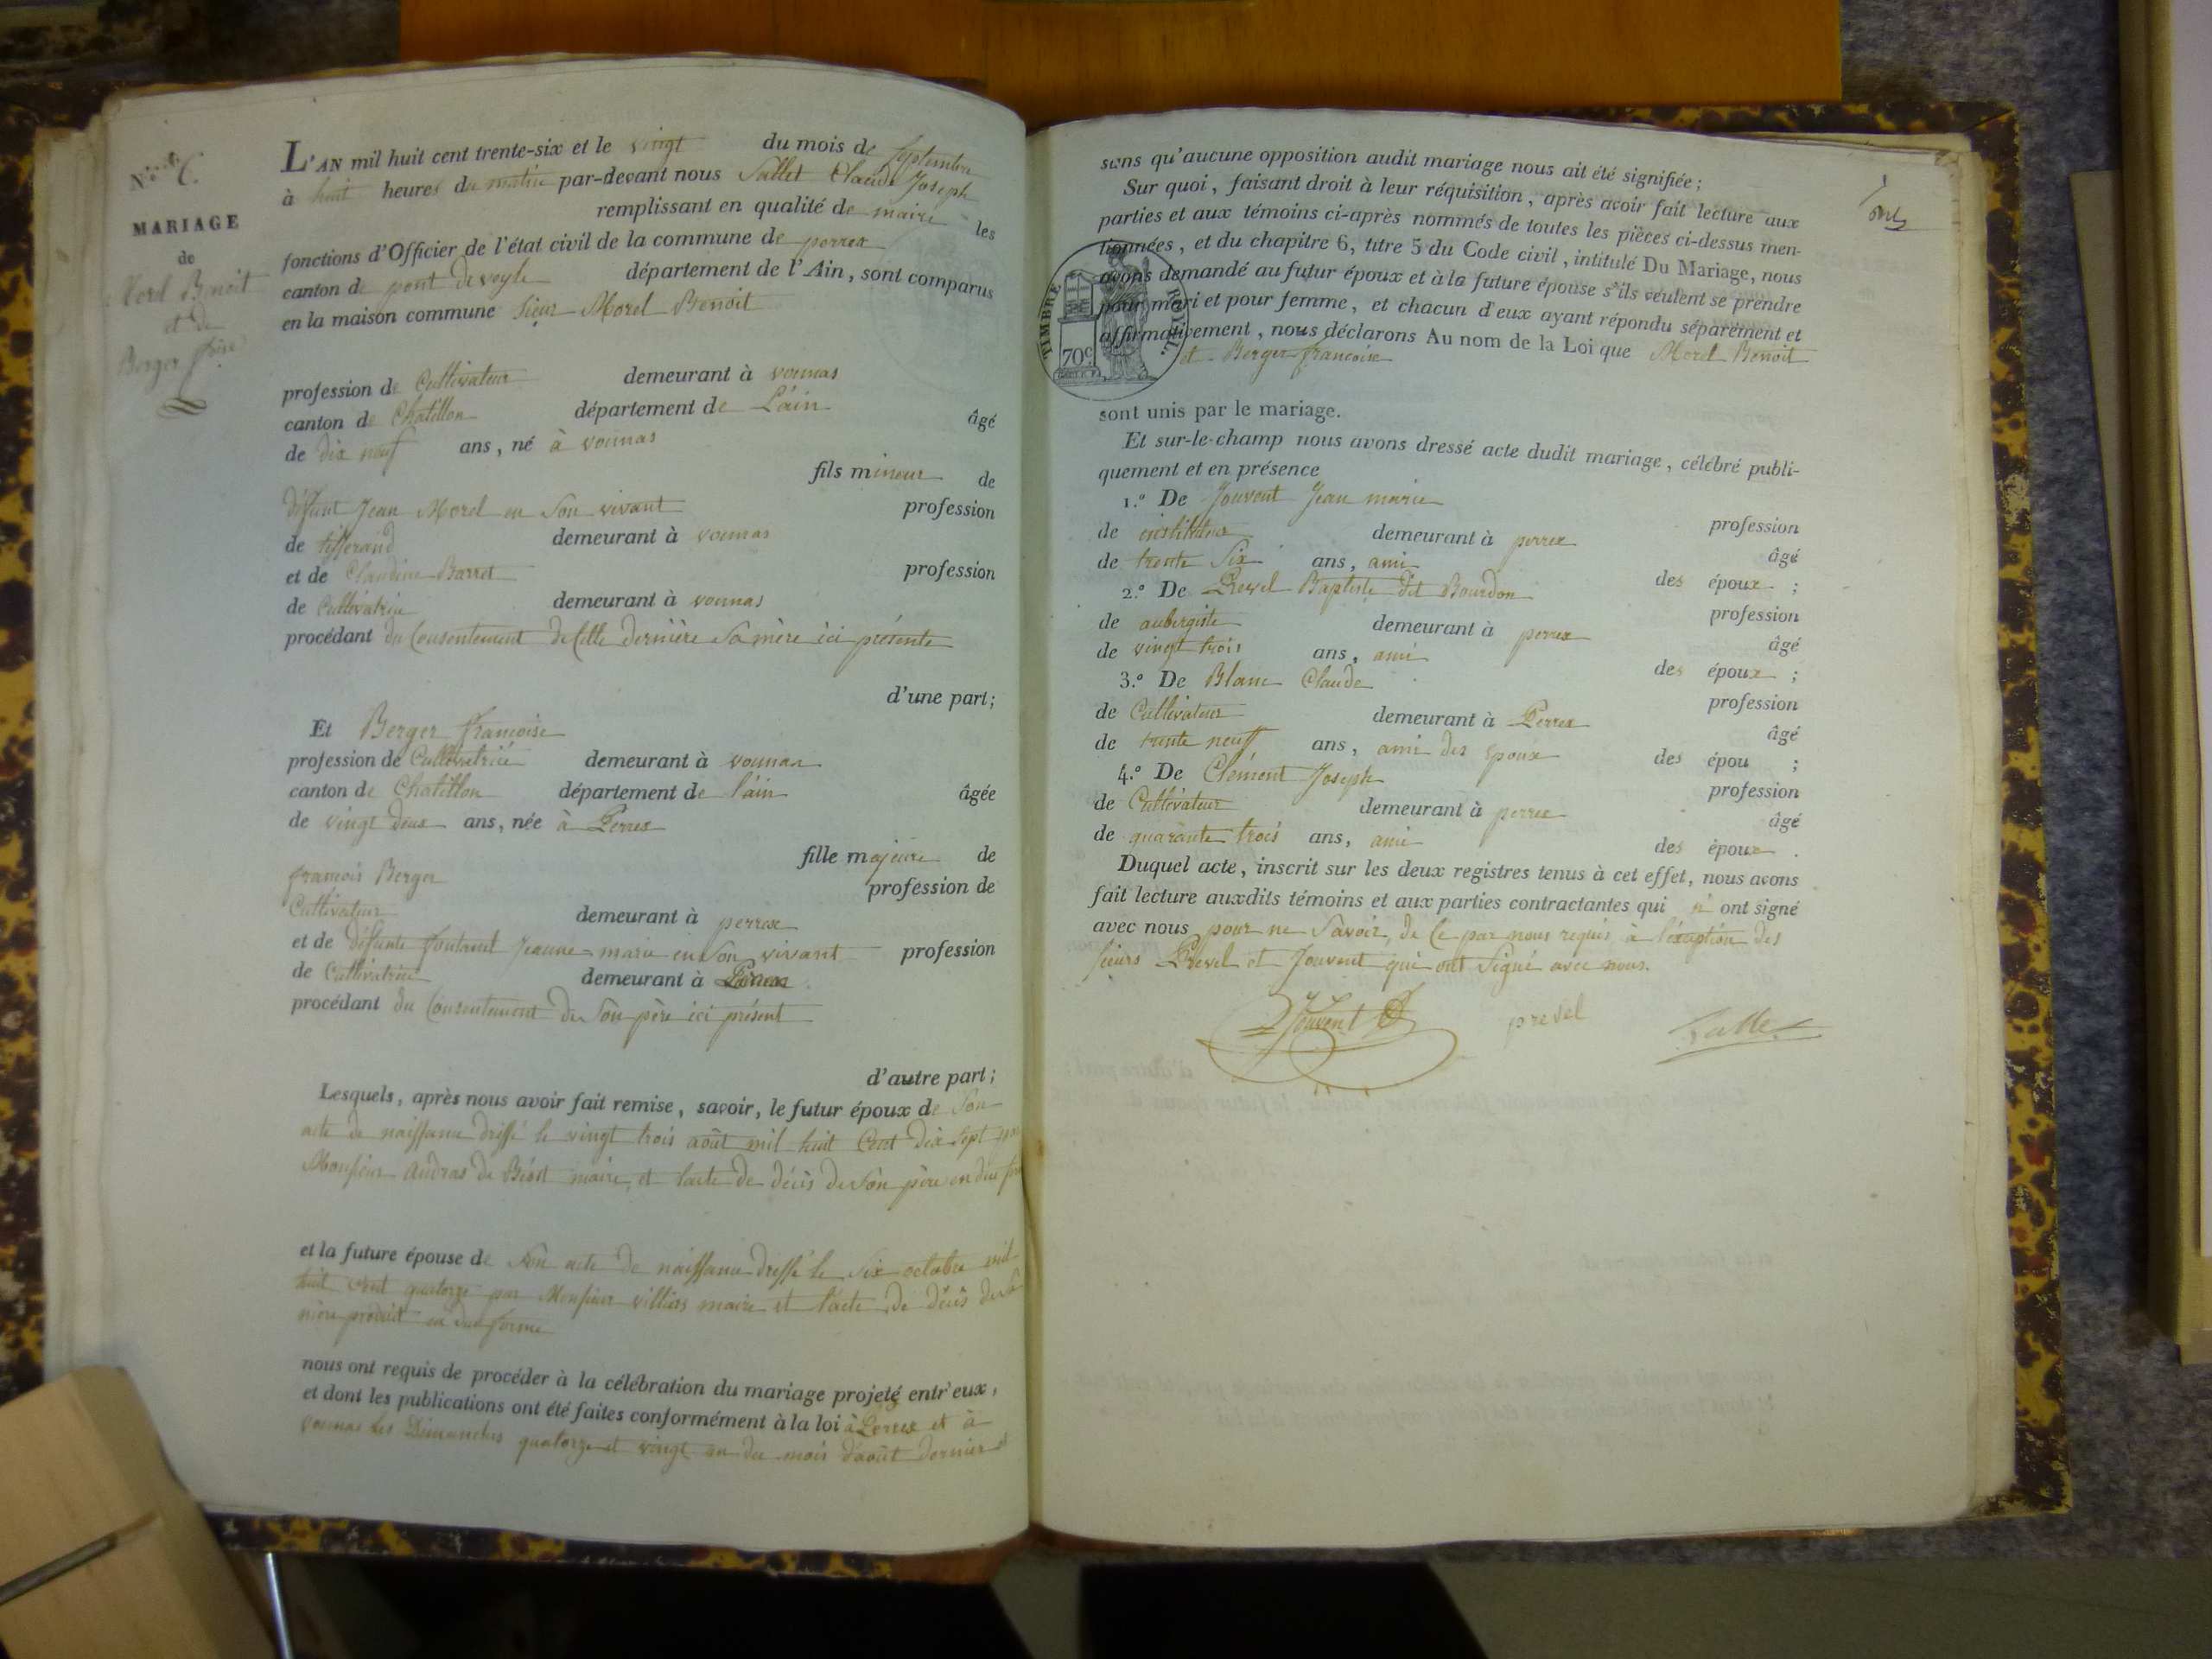 N.° 6.
MARIAGE
de
Morel Benoit
et de
Berger f.oise
L'AN mil huit cent trente-six et le vingt du mois de septembre
à huit heures du matin par-devant nous Sallet Claude Joseph
remplissant en qualité de maire les
fonctions d'Officier de l'état civil de la commune de perrex
canton de pont de veyle département de l'Ain, sont comparus
en la maison commune Sieur Morel Benoit
profession de Cultivateur demeurant à vonnas
canton de Chatillon département de L'ain âgé
de dix neuf ans, né à vonnas
fils mineur de
défunt Jean Morel en Son vivant profession
de tisserand demeurant à vonnas
et de Claudine Barret profession
de Cultivatrice demeurant à vonnas
procédant du Consentement de Cette dernière Sa mère ici présente
d'une part;
Et Berger françoise
profession de Cultivatrice demeurant à vonnas
canton de Chatillon département de l'ain âgée
de vingt deux ans, née à Perrex
fille majeure de
françois Berger profession de
Cultivateur demeurant à perrex
et de défunte fontanel jeanne-marie en Son vivant profession
de Cultivatrice demeurant à Perrex
procédant du Consentement de Son père ici présent
d'autre part;
Lesquels, après nous avoir fait remise, savoir, le futur époux de Son
acte de naissance dressé le vingt trois août mil huit Cent dix sept par
Monsieur audras de Béost maire, et l'acte de décès de Son père en due
et la future épouse de Son acte de naissance dressé le Six octobre mil
huit Cent quatorze par Monsieur villiers maire et l'acte de décès de Sa
mère produit en due forme
nous ont requis de procéder à la célébration du mariage projeté entr'eux,
et dont les publications ont été faites conformément à la loi à Perrex et à
vonnas les Dimanches quatorze et vingt un du mois d'août dernier et
sans qu'aucune opposition audit mariage nous ait été signifiée;
Sur quoi, faisant droit à leur réquisition, après avoir fait lecture aux
parties et aux témoins ci-après nommés de toutes les pièces ci-dessus men-
tionnées, et du chapitre 6, titre 5 du Code civil, intitulé Du Mariage, nous
avons demandé au futur époux et à la future épouse s'ils veulent se prendre
pour mari et pour femme, et chacun d'eux ayant répondu séparément et
affirmativement, nous déclarons Au nom de la Loi que Morel Benoit
et Berger françoise
TIMBRE ROYAL.
70c
sont unis par le mariage.
Et sur-le-champ nous avons dressé acte dudit mariage, célébré publi-
quement et en présence
1.° De Jouvent Jean marie profession
de instituteur demeurant à perrex âgé
de trente Six ans, ami des époux ;
2.° De Prevel Baptiste dit Bourdon profession
de aubergiste demeurant à perrex âgé
de vingt trois ans, ami des époux ;
3.° De Blanc Claude profession
de Cultivateur demeurant à Perrex âgé
de trente neuf ans, ami des époux des épou ;
4.° De Clément Joseph profession
de Cultivateur demeurant à perrex âgé
de quarante trois ans, ami des époux .
Duquel acte, inscrit sur les deux registres tenus à cet effet, nous avons
fait lecture auxdits témoins et aux parties contractantes qui n' ont signé
avec nous pour ne Savoir, de Ce par nous requis à l'éxception des
Sieurs Prevel et Jouvent qui ont Signé avec nous.
Jouvent prevel Sallet